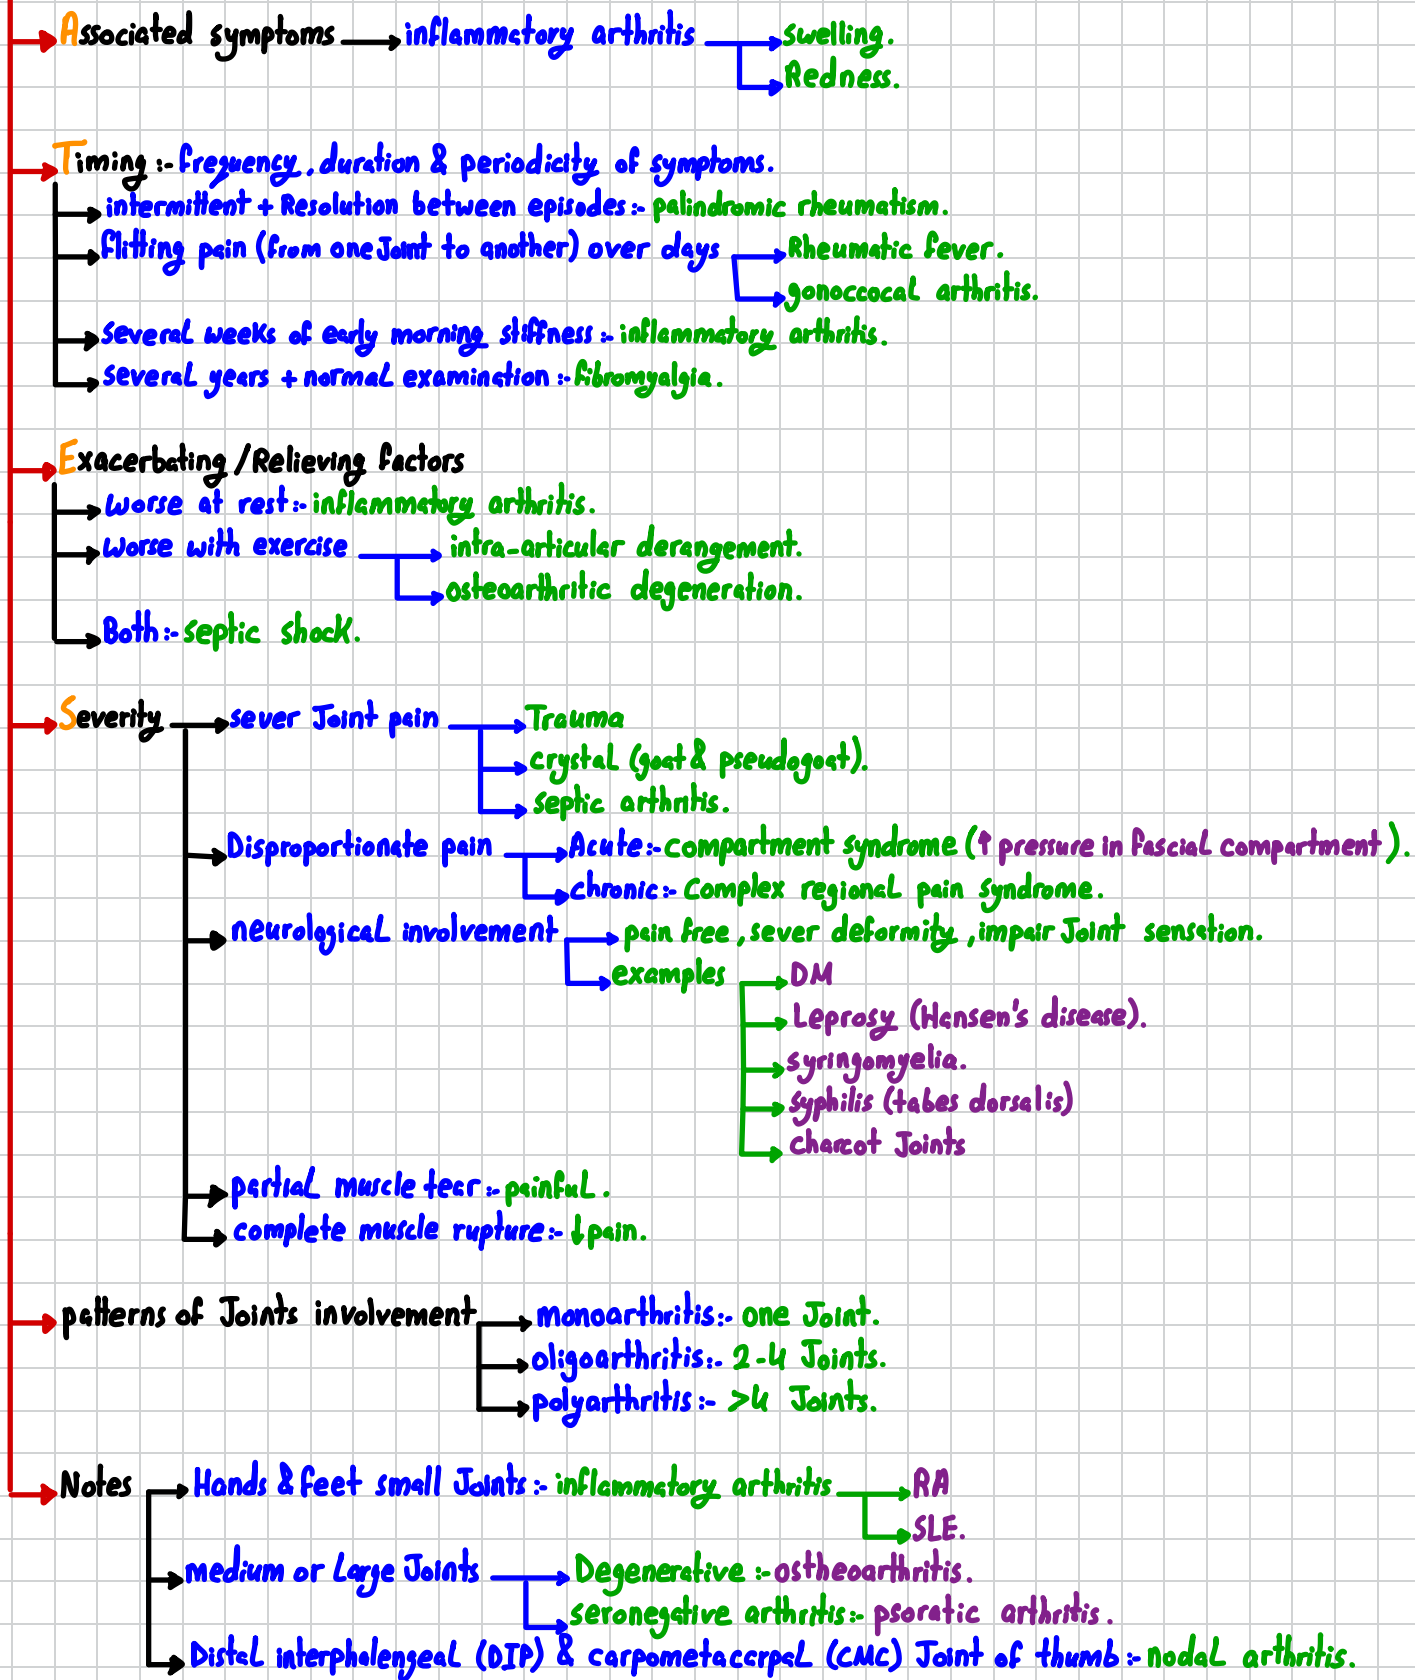 Associated symptoms inflammatory arthritis swelling.
Redness.
Timing :- frequency, duration & periodicity of symptoms.
intermittent + Resolution between episodes :- palindromic rheumatism.
flitting pain (from one Joint to another) over days Rheumatic fever.
gonoccocal arthritis.
several weeks of early morning stiffness :- inflammatory arthritis.
several years + normal examination :- fibromyalgia.
Exacerbating / Relieving factors
worse at rest :- inflammatory arthritis.
worse with exercise intra-articular derangement.
osteoarthritic degeneration.
Both :- septic shock.
Severity sever Joint pain Trauma
crystal (goat & pseudogoat).
septic arthritis.
Disproportionate pain Acute :- compartment syndrome (↑ pressure in fascial compartment).
chronic :- complex regional pain syndrome.
neurological involvement pain free, sever deformity, impair Joint sensation.
examples DM
Leprosy (Hansen's disease).
syringomyelia.
syphilis (tabes dorsalis)
charcot Joints
partial muscle tear :- painful.
complete muscle rupture :- ↓pain.
patterns of Joints involvement monoarthritis :- one Joint.
oligoarthritis :- 2-4 Joints.
polyarthritis :- >4 Joints.
Notes Hands & feet small Joints :- inflammatory arthritis RA
SLE.
medium or Large Joints Degenerative :- ostheoarthritis.
seronegative arthritis :- psoratic arthritis.
Distal interphalengeal (DIP) & carpometacarpal (CMC) Joint of thumb :- nodal arthritis.